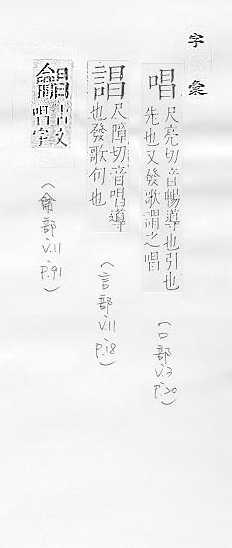 字彙
唱 尺亮切音暢導也引也
先也又發歌謂之唱
(口部 v.3 p.20)
誯 尺障切音唱導
也發歌句也
(言部 v.11 p.18)
龠昌 古文
唱字
(龠部 v.11 p.91)